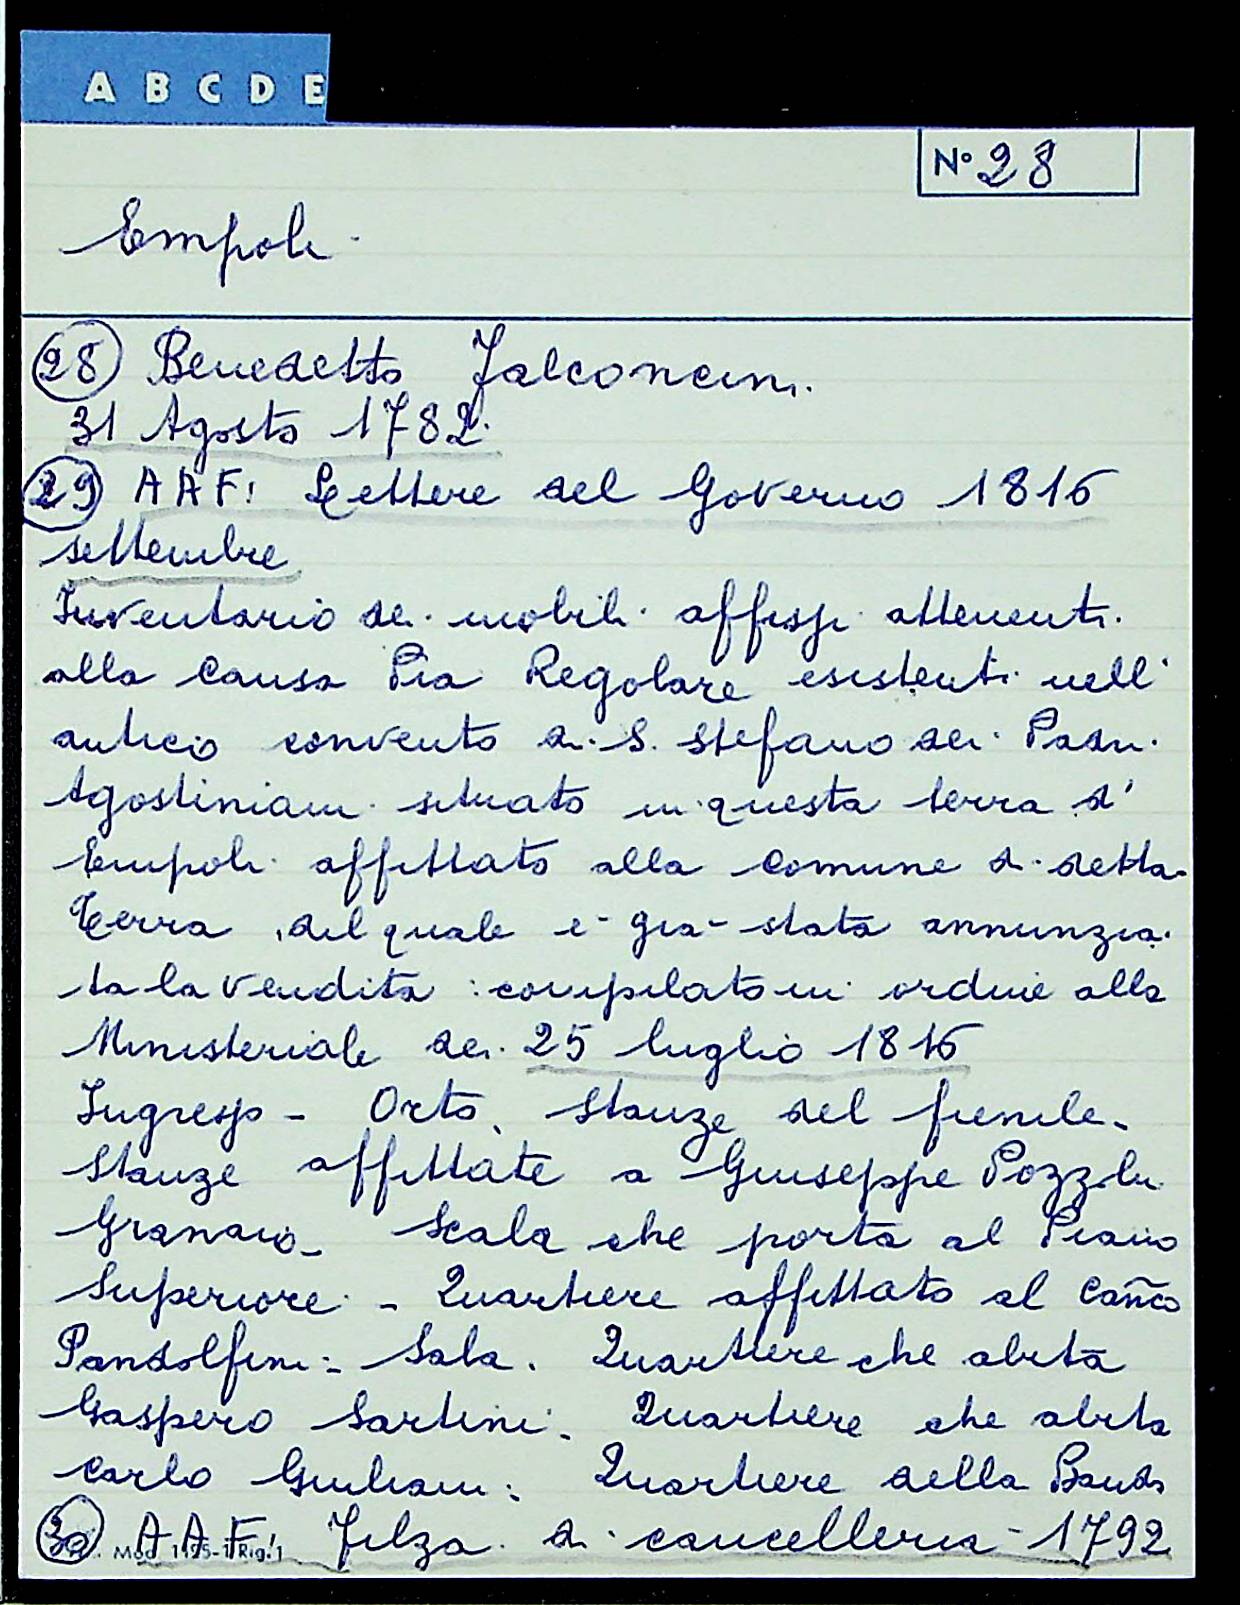 A B C D E
N° 28
Empoli
28 Benedetto Falconcini.
31 Agosto 1782.
29 AAF: Lettere del Governo 1816
settembre
Inventario dei mobili affissi attenenti
alla Causa Pia Regolare esistenti nell'
antico convento di S. Stefano dei Padri
Agostiniani situato in questa terra d'
Empoli affittato alla Comune di detta
Terra, del quale è già stata annunzia
ta la vendita: compilato in ordine alla
Ministeriale dei 25 luglio 1816
Ingresso - Orto, Stanze del fienile -
Stanze affittate a Giuseppe Pozzoli
Granaio - Scala che porta al Piano
Superiore - Quartiere affittato al Cañco
Pandolfini - Sala. Quartiere che abita
Gaspero Sartini. Quartiere che abita
Carlo Giuliani: Quartiere della Banda
30 AAF: Filza di cancelleria - 1792
Mod. 1125-1 Rig. 1